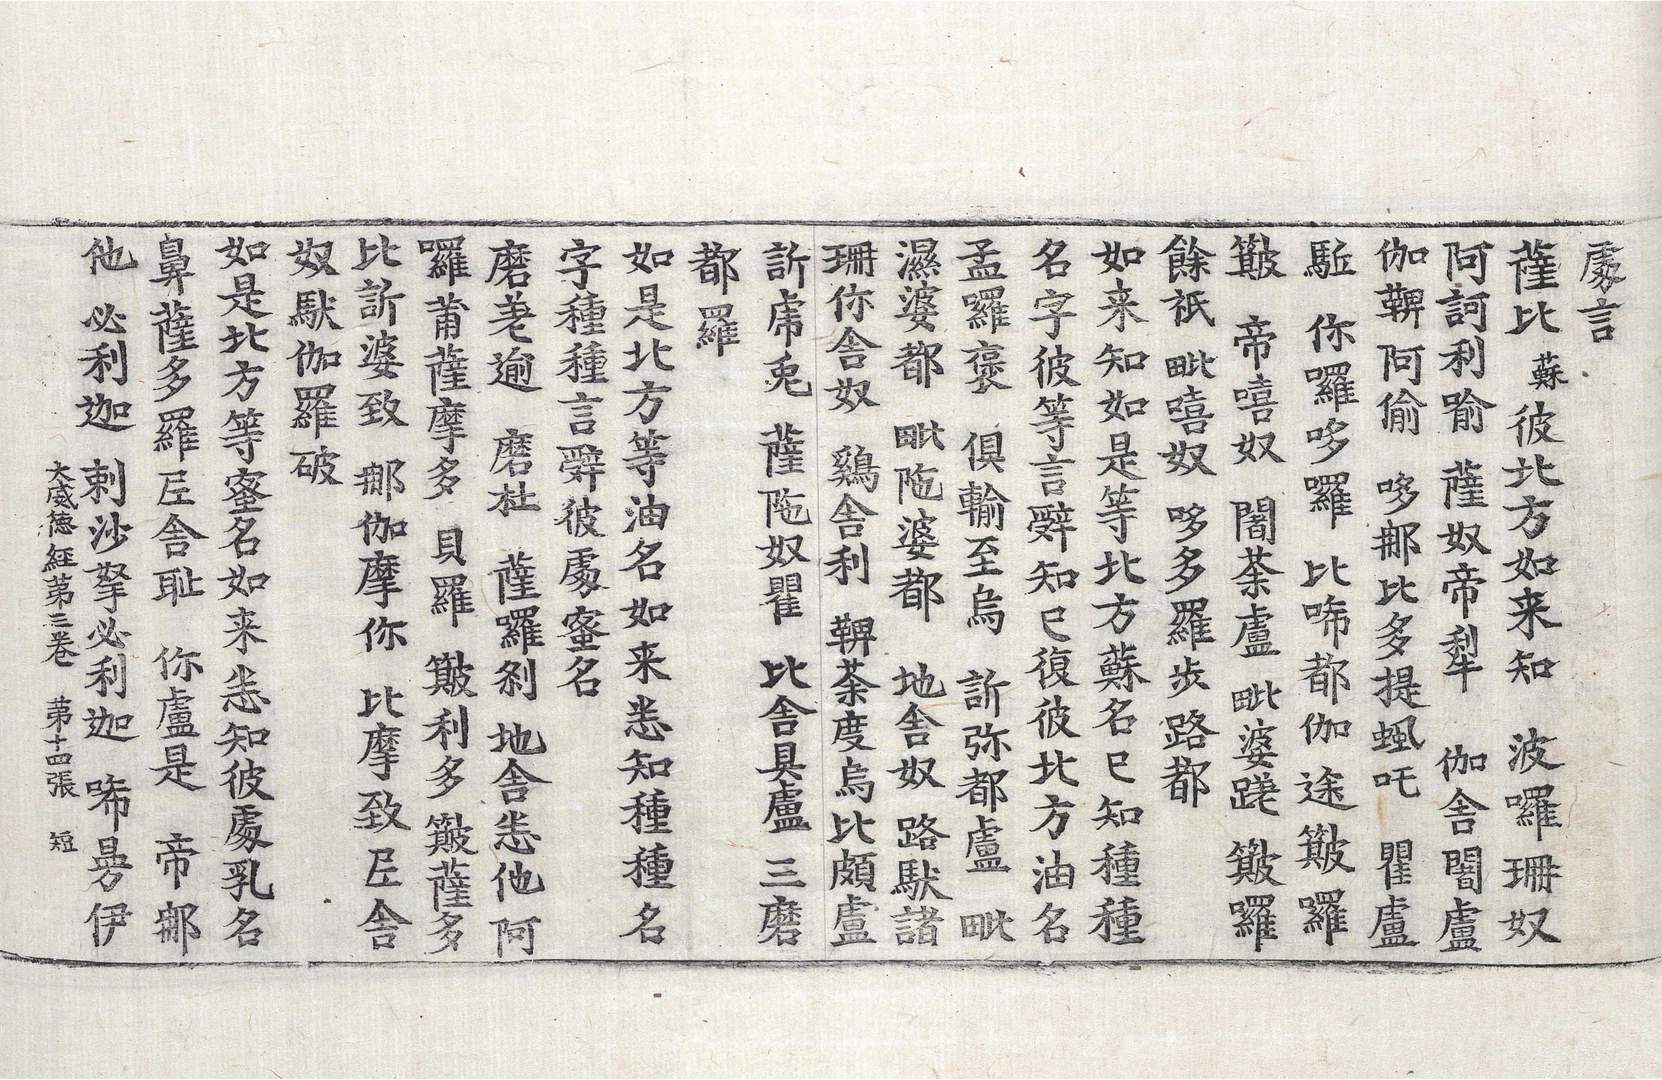 處言
薩比 蘇 彼北方如来知 波囉珊奴
阿訶利喻 薩奴帝犁 伽舎闍盧
伽鞞阿偷 哆那比多提蝨吒 瞿盧
駈 你囉哆囉 比唏都伽途簸囉
簸 帝嘻奴 闍荼盧 毗婆蹉 簸囉
餘祇 毗嘻奴 哆多羅步路都
如来知如是等北方蘇名已知種種
名字彼等言辭知已復彼北方油名
孟囉褒 俱輸至烏 訢弥都盧 毗
濕婆都 毗陁婆都 地舎奴 路馱諸
珊你舎奴 鷄舎利 鞞荼度烏比頗盧
訢帍兎 薩陁奴瞿 比舎具盧 三磨
都羅
如是北方等油名如来悉知種種名
字種種言辭彼處蜜名
磨差逾 磨杜 薩囉剎 地舎恙他 阿
囉莆薩摩多 貝羅 簸利多 簸薩多
比訢婆致 那伽摩你 比摩致 𡰱舎
奴馱伽羅破
如是北方等蜜名如来悉知彼處乳名
鼻薩多羅𡰱舎耻 你盧是 帝那
他 必利迦 剌沙拏必利迦 唏昜伊
大威德經第三卷 第十四張 短